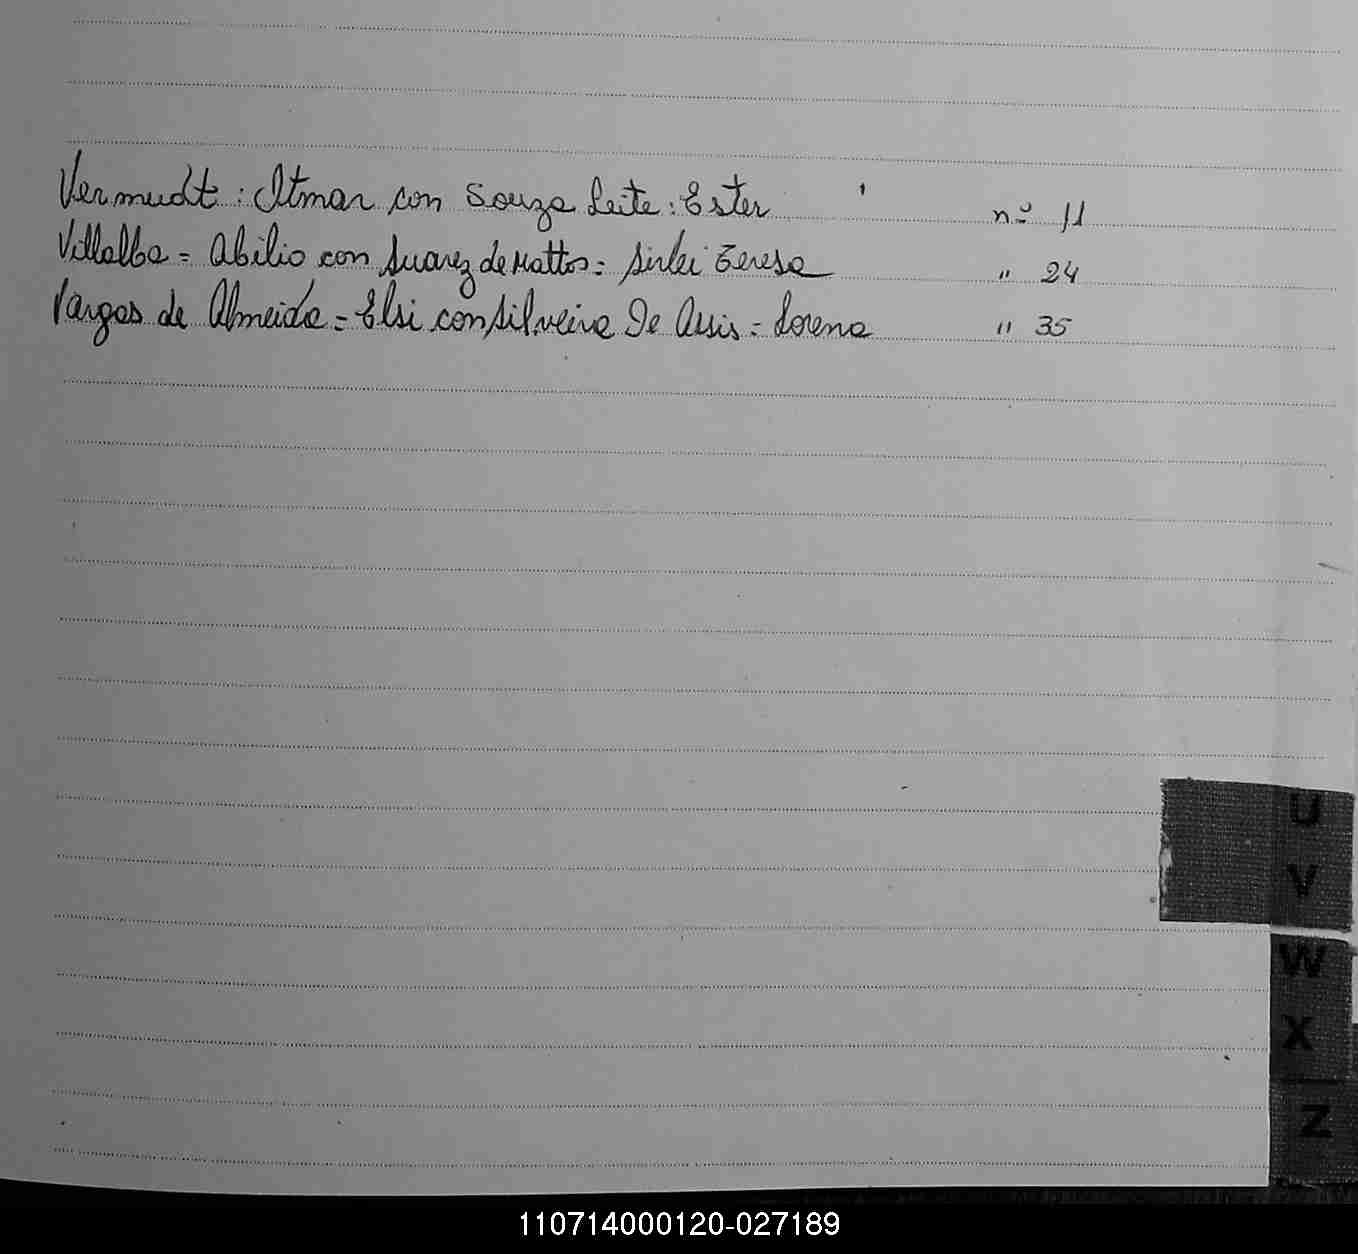 Vermudt : Itmar con Souza Leite : Ester nº 11
Villalba = Abilio con Suarez de Mattos = Sirlei Teresa " 24
Vargas de Almeida = Elsi con Silveira De Assis = Lorena " 35
U
V
W
X
Z
110714000120-027189